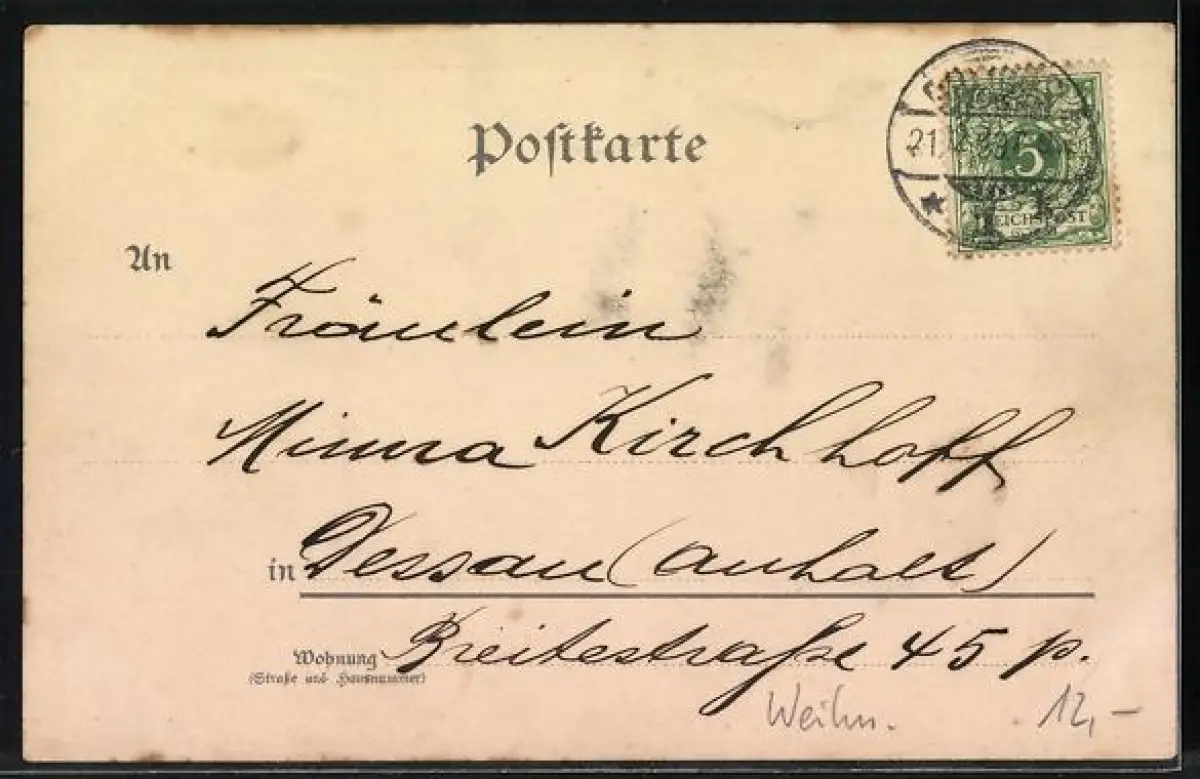 Postkarte
21.12.99
5
REICHSPOST
An
Fräulein
Minna Kirchhoff
in Dessau (Anhalt)
Wohnung Breitestraße 45 p.
(Straße und Hausnummer)
Weihn. 12,-